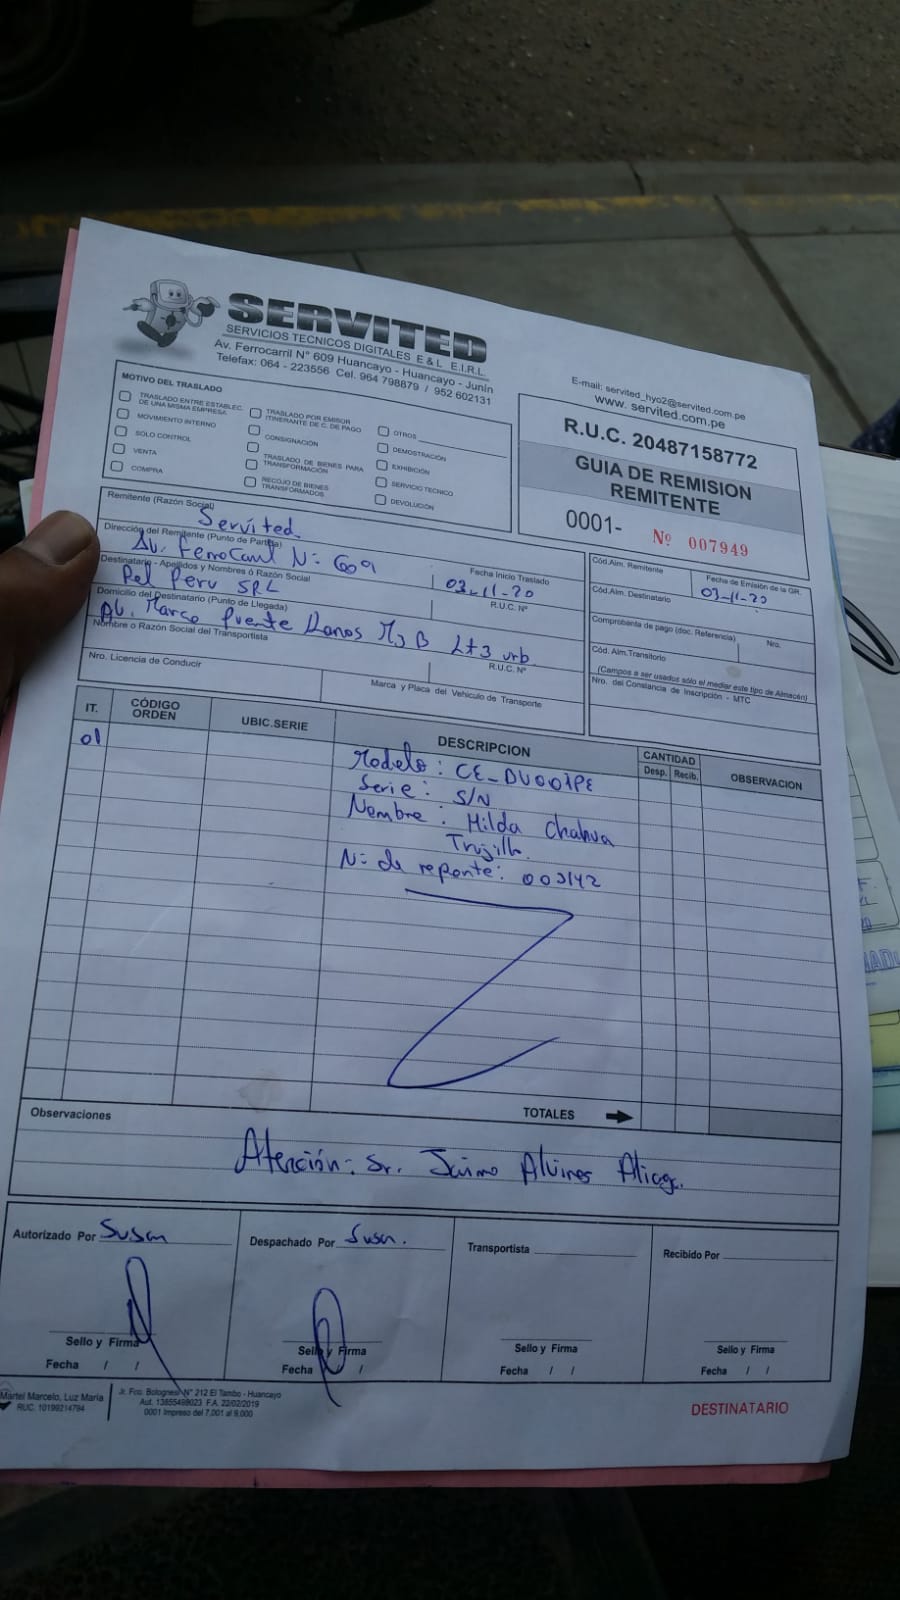 SERVITED
SERVICIOS TECNICOS DIGITALES E & L E.I.R.L.
Av. Ferrocarril N° 609 Huancayo - Huancayo - Junín
Telefax: 064 - 223556 Cel. 964 798879 / 952 602131
E-mail: servited_hyo2@servited.com.pe
www. servited.com.pe
R.U.C. 20487158772
GUIA DE REMISION
REMITENTE
0001- Nº 007949
MOTIVO DEL TRASLADO
TRASLADO ENTRE ESTABLEC.
DE UNA MISMA EMPRESA.
MOVIMIENTO INTERNO
SOLO CONTROL
VENTA
COMPRA
TRASLADO POR EMISOR
ITINERANTE DE C. DE PAGO
CONSIGNACIÓN
TRASLADO DE BIENES PARA
TRANSFORMACIÓN
RECOJO DE BIENES
TRANSFORMADOS
OTROS
DEMOSTRACIÓN
EXHIBICIÓN
SERVICIO TECNICO
DEVOLUCIÓN
Remitente (Razón Social)
Servited
Dirección del Remitente (Punto de Partida)
Av. Ferrocarril N= 609
Fecha Inicio Traslado
03-11-20
Destinatario - Apellidos y Nombres ó Razón Social
Rel Peru SRL
R.U.C. Nº
Domicilio del Destinatario (Punto de Llegada)
Av. Marco Puente Llanos Mz B Lt3 urb
Nombre o Razón Social del Transportista
R.U.C. Nº
Nro. Licencia de Conducir
Marca y Placa del Vehiculo de Transporte
Cód.Alm. Remitente
Fecha de Emisión de la GR.
03-11-20
Cód.Alm. Destinatario
Comprobante de pago (doc. Referencia)
Nro.
Cód. Alm.Transitorio
(Campos a ser usados sólo el mediar este tipo de Almacén)
Nro. del Constancia de Inscripción - MTC
IT. CÓDIGO ORDEN UBIC.SERIE DESCRIPCION CANTIDAD Desp. Recib. OBSERVACION
01 Modelo : CE-DV001PE
Serie : S/N
Nombre : Hilda Chahua
Trujillo.
N= de reporte: 003142
TOTALES
Observaciones
Atención: Sr. Jaime Alvines Aliaga.
Autorizado Por Susan
Despachado Por Susan.
Transportista
Recibido Por
Sello y Firma
Fecha / /
Sello y Firma
Fecha / /
Sello y Firma
Fecha / /
Sello y Firma
Fecha / /
Martel Marcelo, Luz Maria
RUC. 10199214794
Jr. Fco. Bolognesi N° 212 El Tambo - Huancayo
Aut. 13855498023 F.A. 22/02/2019
0001 Impreso del 7,001 al 9,000
DESTINATARIO